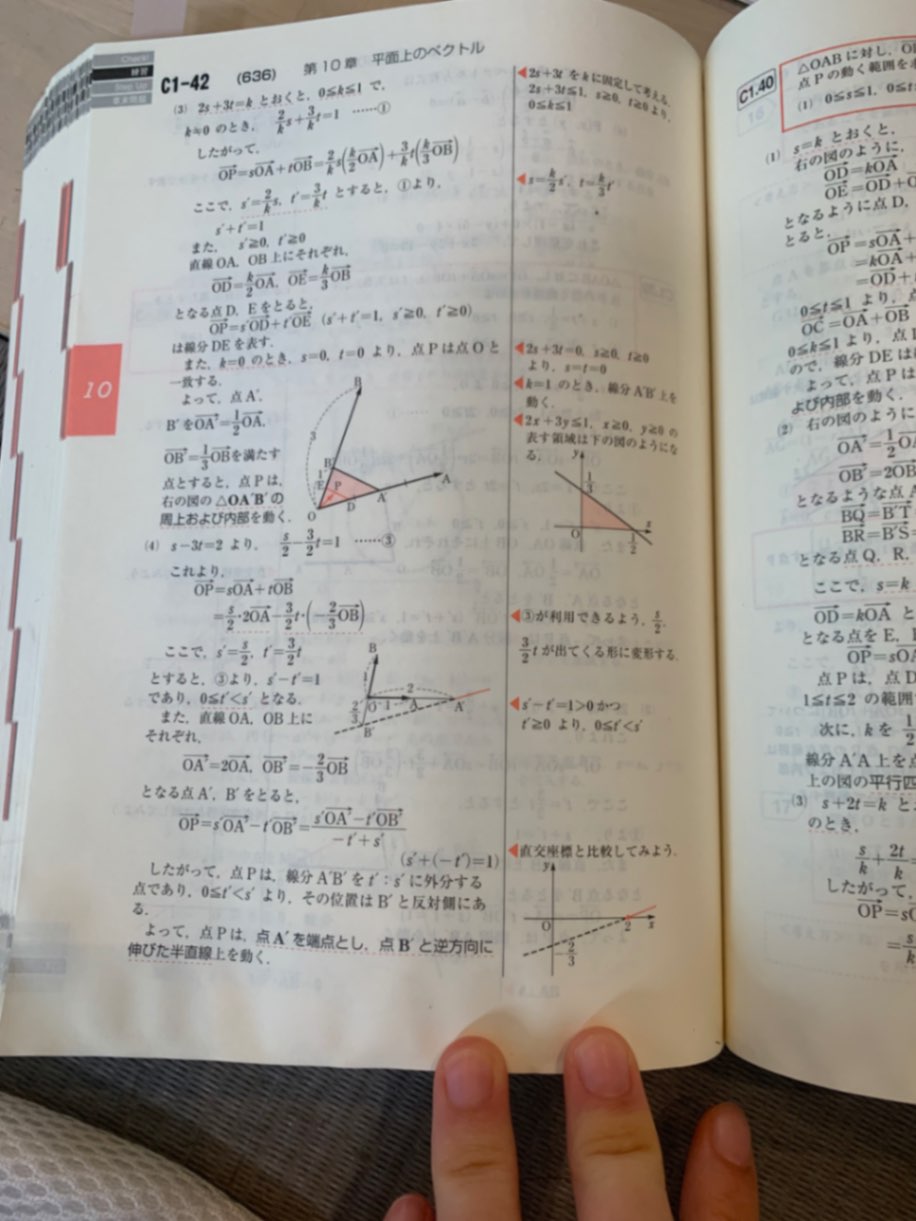 Check!
練習
Step Up
章末問題
C1-42 (636) 第10章 平面上のベクトル
(3) 2s+3t=k とおくと, 0≦k≦1 で,
k≠0 のとき, 2/k s+3/k t=1 ……①
したがって,
OP=sOA+tOB=2/k s(k/2 OA)+3/k t(k/3 OB)
ここで, s′=2/k s, t′=3/k t とすると, ①より,
s′+t′=1
また, s′≧0, t′≧0
直線 OA, OB 上にそれぞれ,
OD=k/2 OA, OE=k/3 OB
となる点 D, E をとると,
OP=s′OD+t′OE (s′+t′=1, s′≧0, t′≧0)
は線分 DE を表す.
また, k=0 のとき, s=0, t=0 より, 点Pは点Oと
一致する.
よって, 点A′,
B′を OA′=1/2 OA,
OB′=1/3 OB を満たす
点とすると, 点Pは,
右の図の △OA′B′ の
周上および内部を動く.
B
3
B′
1
E
P
O
D
A′
A
(4) s-3t=2 より, s/2-3/2 t=1 ……③
これより,
OP=sOA+tOB
=s/2・2OA-3/2 t・(-2/3 OB)
ここで, s′=s/2, t′=3/2 t
とすると, ③より, s′-t′=1
であり, 0≦t′<s′ となる.
また, 直線 OA, OB 上に
それぞれ,
OA′=2OA, OB′=-2/3 OB
となる点 A′, B′ をとると,
OP=s′OA′-t′OB′=(s′OA′-t′OB′)/(-t′+s′)
(s′+(-t′)=1)
したがって, 点Pは, 線分 A′B′ を t′:s′ に外分する
点であり, 0≦t′<s′ より, その位置は B′ と反対側にあ
る.
よって, 点Pは, 点A′を端点とし, 点B′と逆方向に
伸びた半直線上を動く.
B
1
2
O
1
A
A′
2/3
B′
10
◀2s+3t を k に固定して考える.
2s+3t≦1, s≧0, t≧0 より,
0≦k≦1
◀s=k/2 s′, t=k/3 t′
◀2s+3t=0, s≧0, t≧0
より, s=t=0
◀k=1 のとき, 線分 A′B′ 上を
動く.
◀2x+3y≦1, x≧0, y≧0 の
表す領域は下の図のようにな
る.
y
1/3
O
1/2
x
◀③が利用できるよう, s/2,
3/2 t が出てくる形に変形する.
◀s′-t′=1>0 かつ
t′≧0 より, 0≦t′<s′
◀直交座標と比較してみよう.
y
O
2
x
-2/3
C1.40
△OABに対し,
点Pの動く範囲を
(1) 0≦s≦1,
(1) s=k とおくと,
右の図のように,
OD=kOA
OE=OD+
となるように点 D,
とると,
OP=sOA+
=kOA+
=OD+
0≦t≦1 より,
OC=OA+OB
0≦k≦1 より, 点
ので, 線分 DE は
よって, 点Pは
よび内部を動く.
(2) 右の図のように
OA′=1/2 O
OB′=2OB
となるような点
BQ=B′T
BR=B′S=
となる点 Q, R,
ここで, s=k
OD=kOA と
となる点を E,
OP=sO
点Pは, 点D
1≦t≦2 の範囲
次に, k を 1/2
線分 A′A 上を点
上の図の平行四
(3) s+2t=k と
のとき,
s/k+2t/k=
したがって,
OP=s